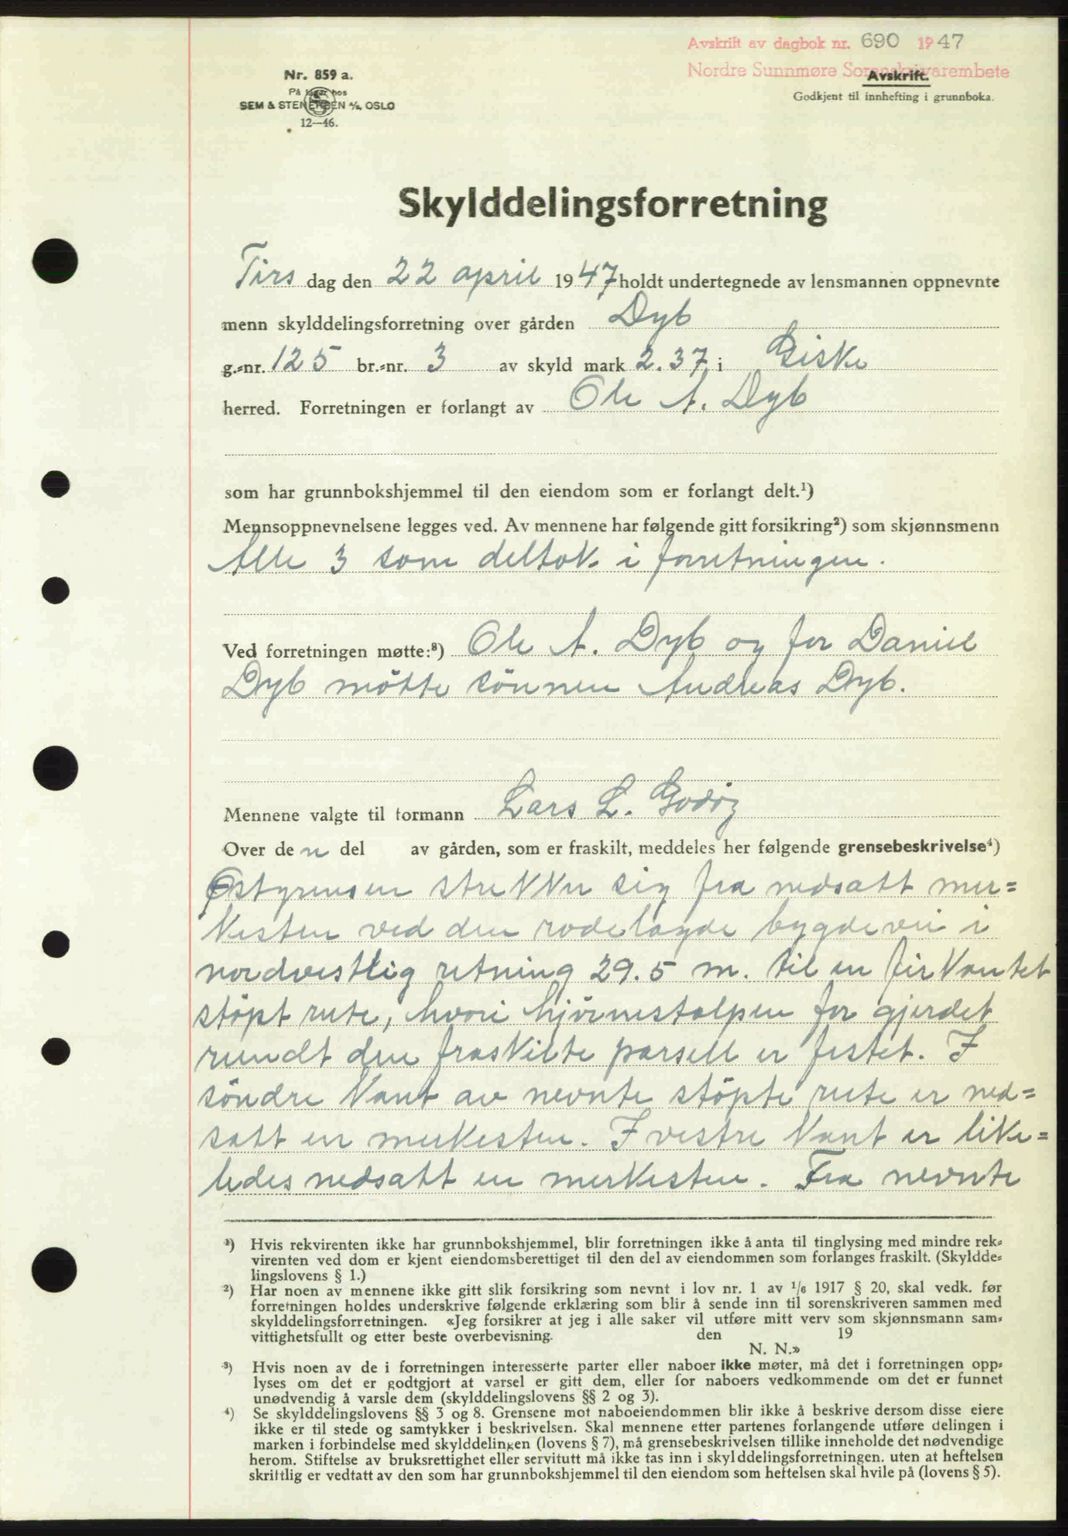 Avskrift av dagbok nr. 690 1947
Nordre Sunnmøre Sorenskrivarembete
Avskrift.
Godkjent til innhefting i grunnboka.
Nr. 859 a.
På lager hos
SEM & STENERSEN A/S, OSLO
12—46.
Skylddelingsforretning
Tirs dag den 22 april 1947 holdt undertegnede av lensmannen oppnevnte
menn skylddelingsforretning over gården Dyb
g.-nr. 125 br.-nr. 3 av skyld mark 2.37 i Giske
herred. Forretningen er forlangt av Ole A. Dyb
som har grunnbokshjemmel til den eiendom som er forlangt delt.¹)
Mennsoppnevnelsene legges ved. Av mennene har følgende gitt forsikring²) som skjønnsmenn
Alle 3 som deltok i forretningen.
Ved forretningen møtte:³) Ole A. Dyb og for Daniel
Dyb møtte sønnen Andreas Dyb.
Mennene valgte til formann Lars L. Godøy
Over de n del av gården, som er fraskilt, meddeles her følgende grensebeskrivelse⁴)
Østgrensen strekker sig fra nedsatt mer=
kesten ved den rodelagde bygdevei i
nordvestlig retning 29.5 m. til en firkantet
støpt rute, hvori hjørnestolpen for gjerdet
rundt den fraskilte parsell er festet. I
søndre kant av nevnte støpte rute er ned=
satt en merkesten. I vestre kant er like=
ledes nedsatt en merkesten. Fra nevnte
¹) Hvis rekvirenten ikke har grunnbokshjemmel, blir forretningen ikke å anta til tinglysing med mindre rek-
virenten ved dom er kjent eiendomsberettiget til den del av eiendommen som forlanges fraskilt. (Skyldde-
lingslovens § 1.)
²) Har noen av mennene ikke gitt slik forsikring som nevnt i lov nr. 1 av ¹/₆ 1917 § 20, skal vedk. før
forretningen holdes underskrive følgende erklæring som blir å sende inn til sorenskriveren sammen med
skylddelingsforretningen. «Jeg forsikrer at jeg i alle saker vil utføre mitt verv som skjønnsmann sam-
vittighetsfullt og etter beste overbevisning. den 19
N. N.»
³) Hvis noen av de i forretningen interesserte parter eller naboer ikke møter, må det i forretningen opp-
lyses om det er godtgjort at varsel er gitt dem, eller for naboers vedkommende om det er funnet
unødvendig å varsle dem (skylddelingslovens §§ 2 og 3).
⁴) Se skylddelingslovens §§ 3 og 8. Grensene mot naboeiendommen blir ikke å beskrive dersom disse eiere
ikke er til stede og samtykker i beskrivelsen. Skal mennene etter partenes forlangende utføre delingen i
marken i forbindelse med skylddelingen (lovens § 7), må grensebeskrivelsen tillike inneholde det nødvendige
herom. Stiftelse av bruksrettighet eller servitutt må ikke tas inn i skylddelingsforretningen, uten at heftelsen
skriftlig er vedtatt av den som har grunnbokshjemmel til den eiendom som heftelsen skal hvile på (lovens § 5).